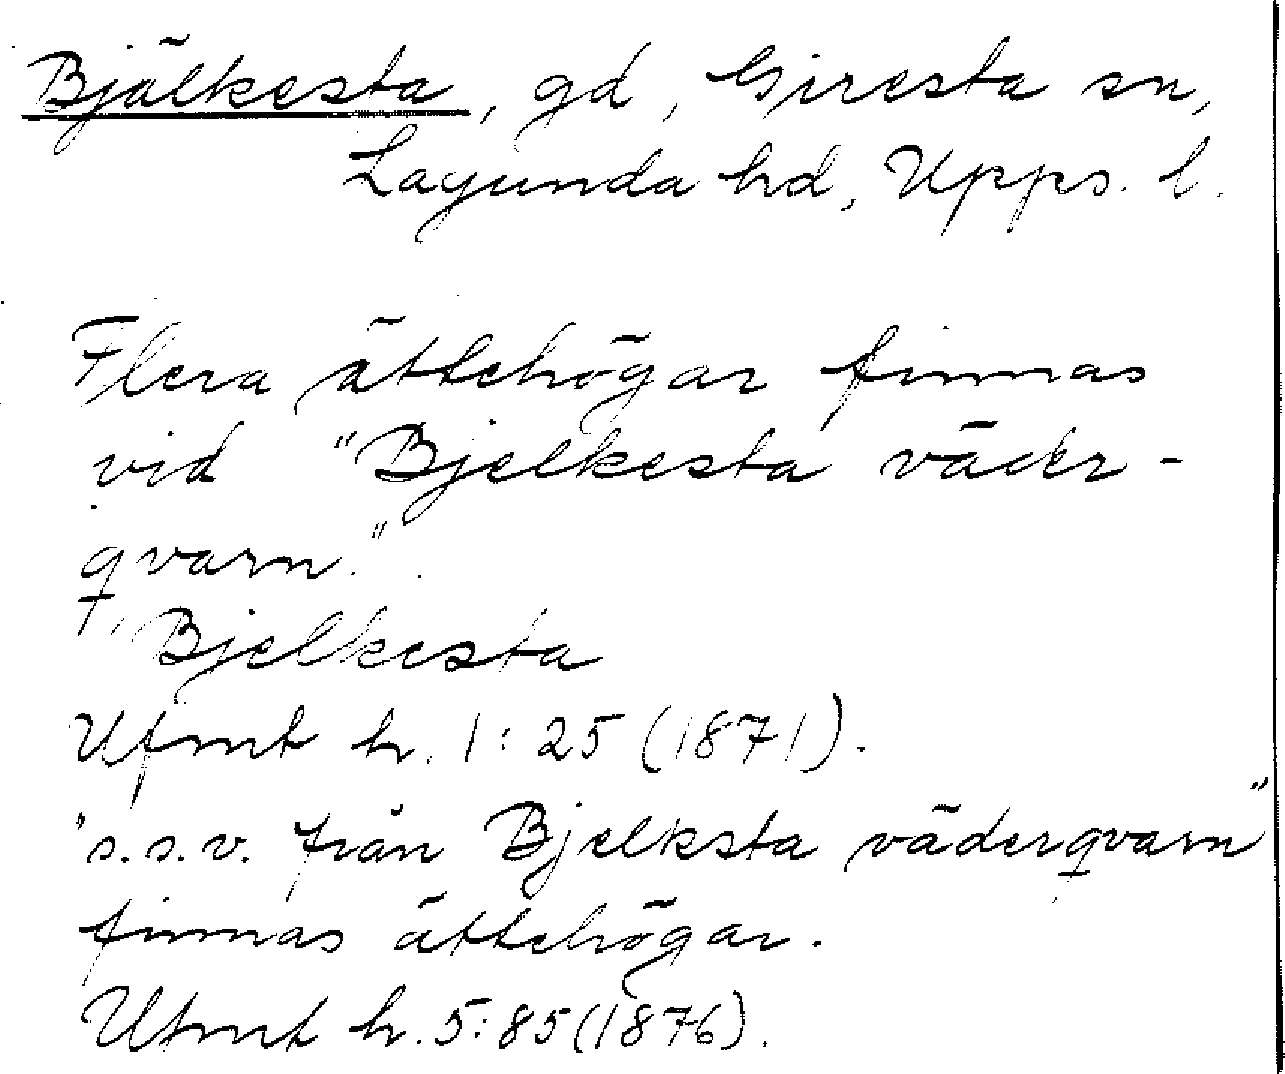 Bjälkesta, gd, Giresta sn,
Lagunda hd, Upps. l.
Flera ättehögar finnas
vid "Bjelkesta väder-
qvarn."
Bjelkesta
Ufmt h. 1:25 (1871).
"s.s.v. från Bjelksta väderqvarn"
finnas ättehögar.
Ufmt h. 5:85 (1876).